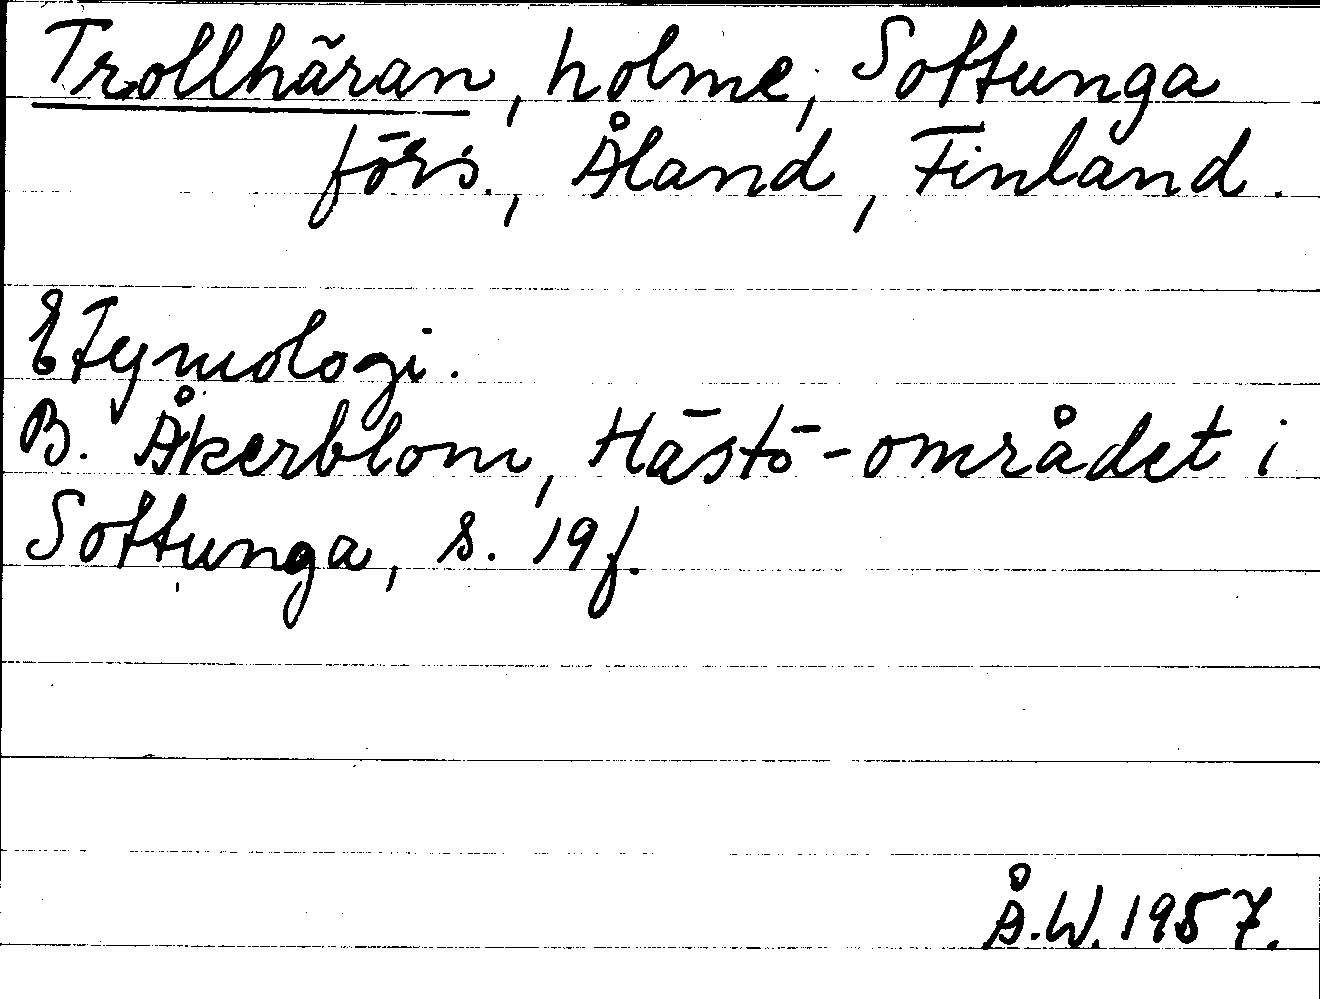 Trollhäran, holme, Sottunga
förs., Åland, Finland.
Etymologi.
B. Åkerblom, Hästö-området i
Sottunga, s. 19f.
Å.W. 1957.